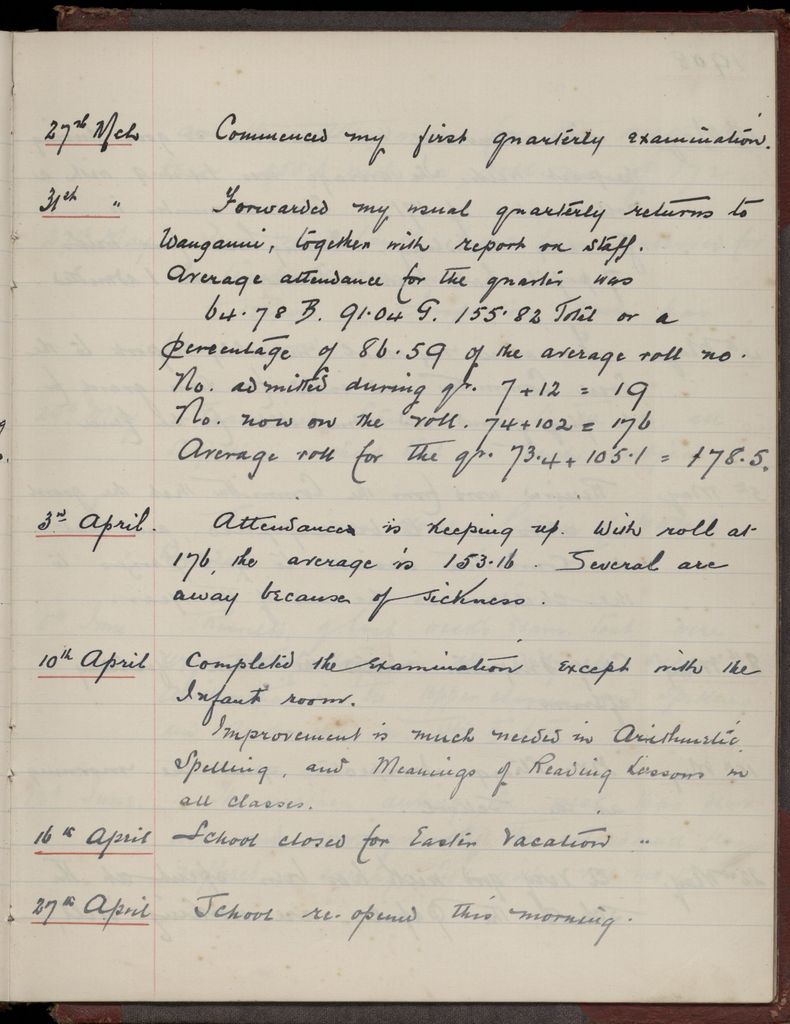 27th Mch Commenced my first quarterly examination.
31st " Forwarded my usual quarterly returns to
Wanganui, together with report on Staff.
Average attendance for the quarter was
64.78 B. 91.04 G. 155.82 Total or a
percentage of 86.59 of the average roll no.
No. admitted during qr. 7 + 12 = 19
No. now on the roll. 74 + 102 = 176
Average roll for the qr. 73.4 + 105.1 = 178.5.
3rd April. Attendance is keeping up. With roll at
176, the average is 153.16. Several are
away because of sickness.
10th April Completed the examination except with the
Infant room.
Improvement is much needed in Arithmetic,
Spelling, and Meanings of Reading Lessons in
all classes.
16th April School closed for Easter Vacation "
27th April School re-opened this morning.